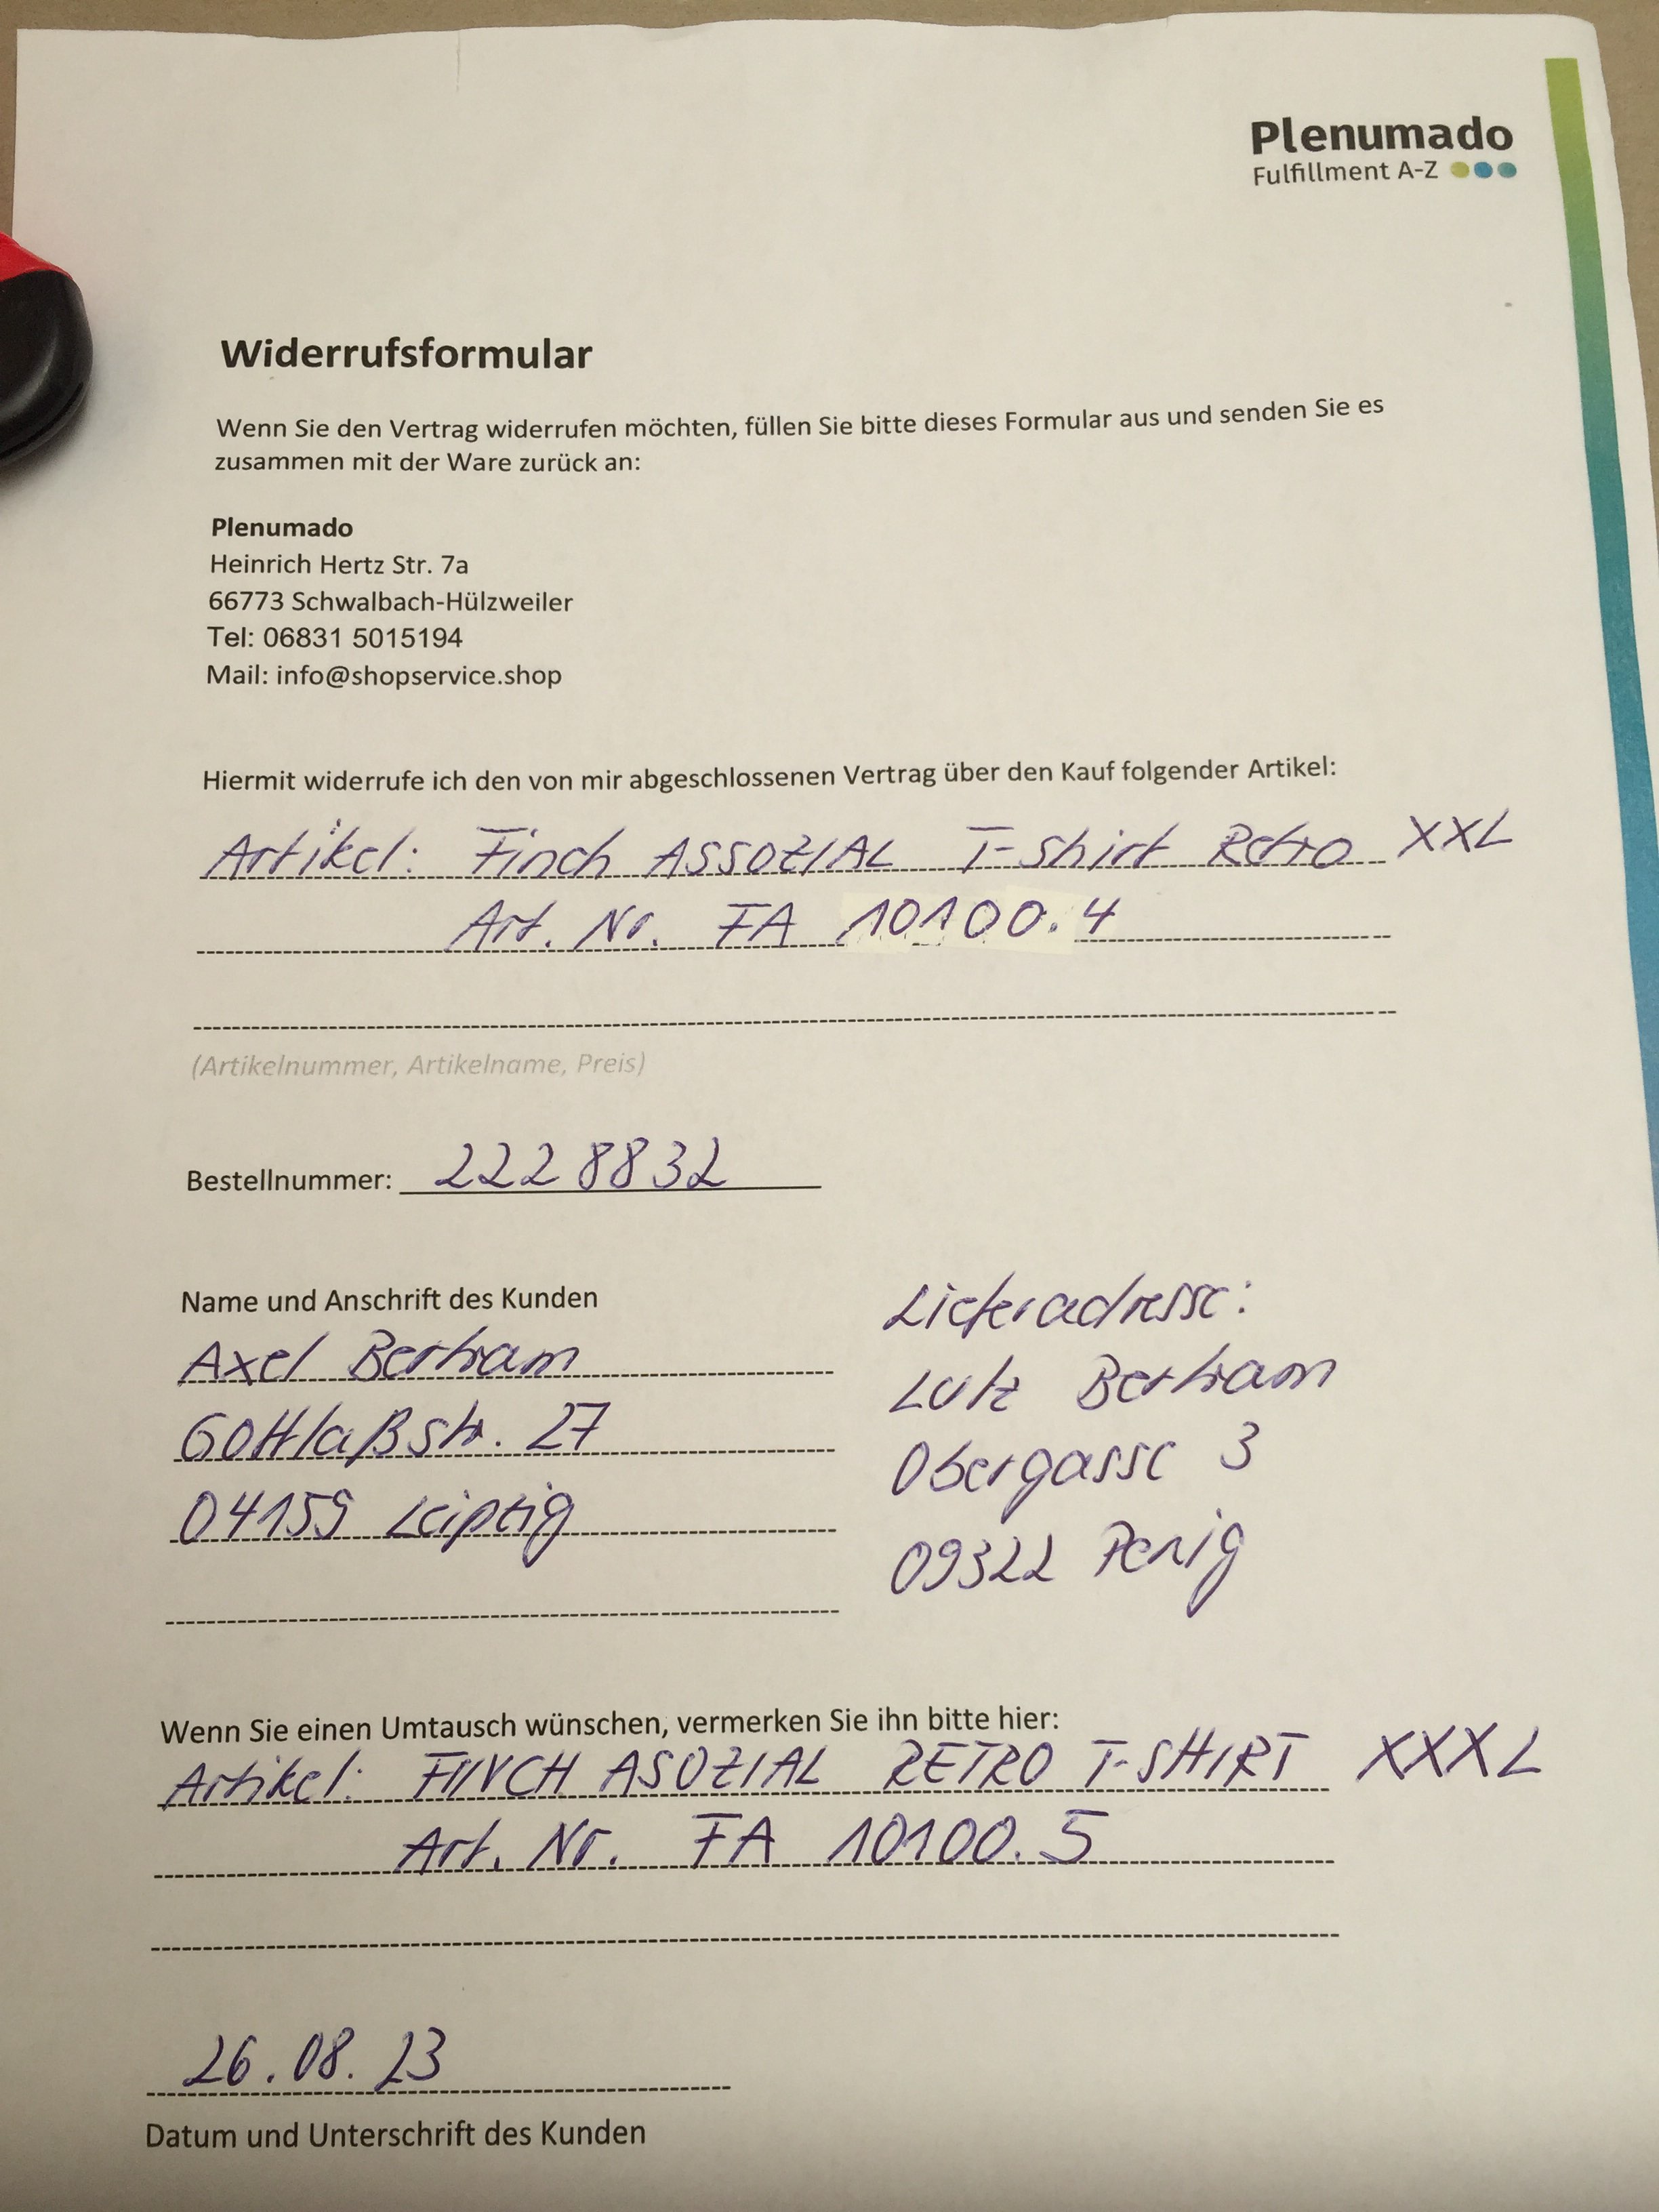 Plenumado
Fulfillment A-Z
Widerrufsformular
Wenn Sie den Vertrag widerrufen möchten, füllen Sie bitte dieses Formular aus und senden Sie es
zusammen mit der Ware zurück an:
Plenumado
Heinrich Hertz Str. 7a
66773 Schwalbach-Hülzweiler
Tel: 06831 5015194
Mail: info@shopservice.shop
Hiermit widerrufe ich den von mir abgeschlossenen Vertrag über den Kauf folgender Artikel:
Artikel: Finch ASSOZIAL T-Shirt Retro XXL
Art. Nr. FA 10100.4
(Artikelnummer, Artikelname, Preis)
Bestellnummer: 2228832
Name und Anschrift des Kunden
Axel Bertram
Gottlaßstr. 27
04159 Leipzig
Lieferadresse:
Lutz Bertram
Obergasse 3
09322 Penig
Wenn Sie einen Umtausch wünschen, vermerken Sie ihn bitte hier:
Artikel: FINCH ASOZIAL RETRO T-SHIRT XXXL
Art. Nr. FA 10100.5
26.08.23
Datum und Unterschrift des Kunden